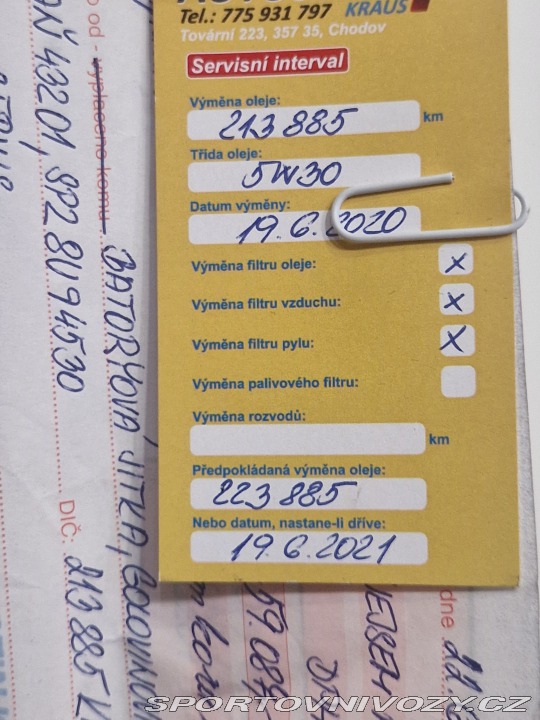 Tel.: 775 931 797 KRAUS
Tovární 223, 357 35, Chodov
Servisní interval
Výměna oleje:
213 885 km
Třída oleje:
5W30
Datum výměny:
19.6.2020
Výměna filtru oleje: X
Výměna filtru vzduchu: X
Výměna filtru pylu: X
Výměna palivového filtru:
Výměna rozvodů:
km
Předpokládaná výměna oleje:
223 885
Nebo datum, nastane-li dříve:
19.6.2021
43201, SPZ 8U9 4530
od - vyplaceno komu
BATORYOVÁ JITKA,
DIČ: 213 885
dne 22
SPORTOVNIVOZY.CZ